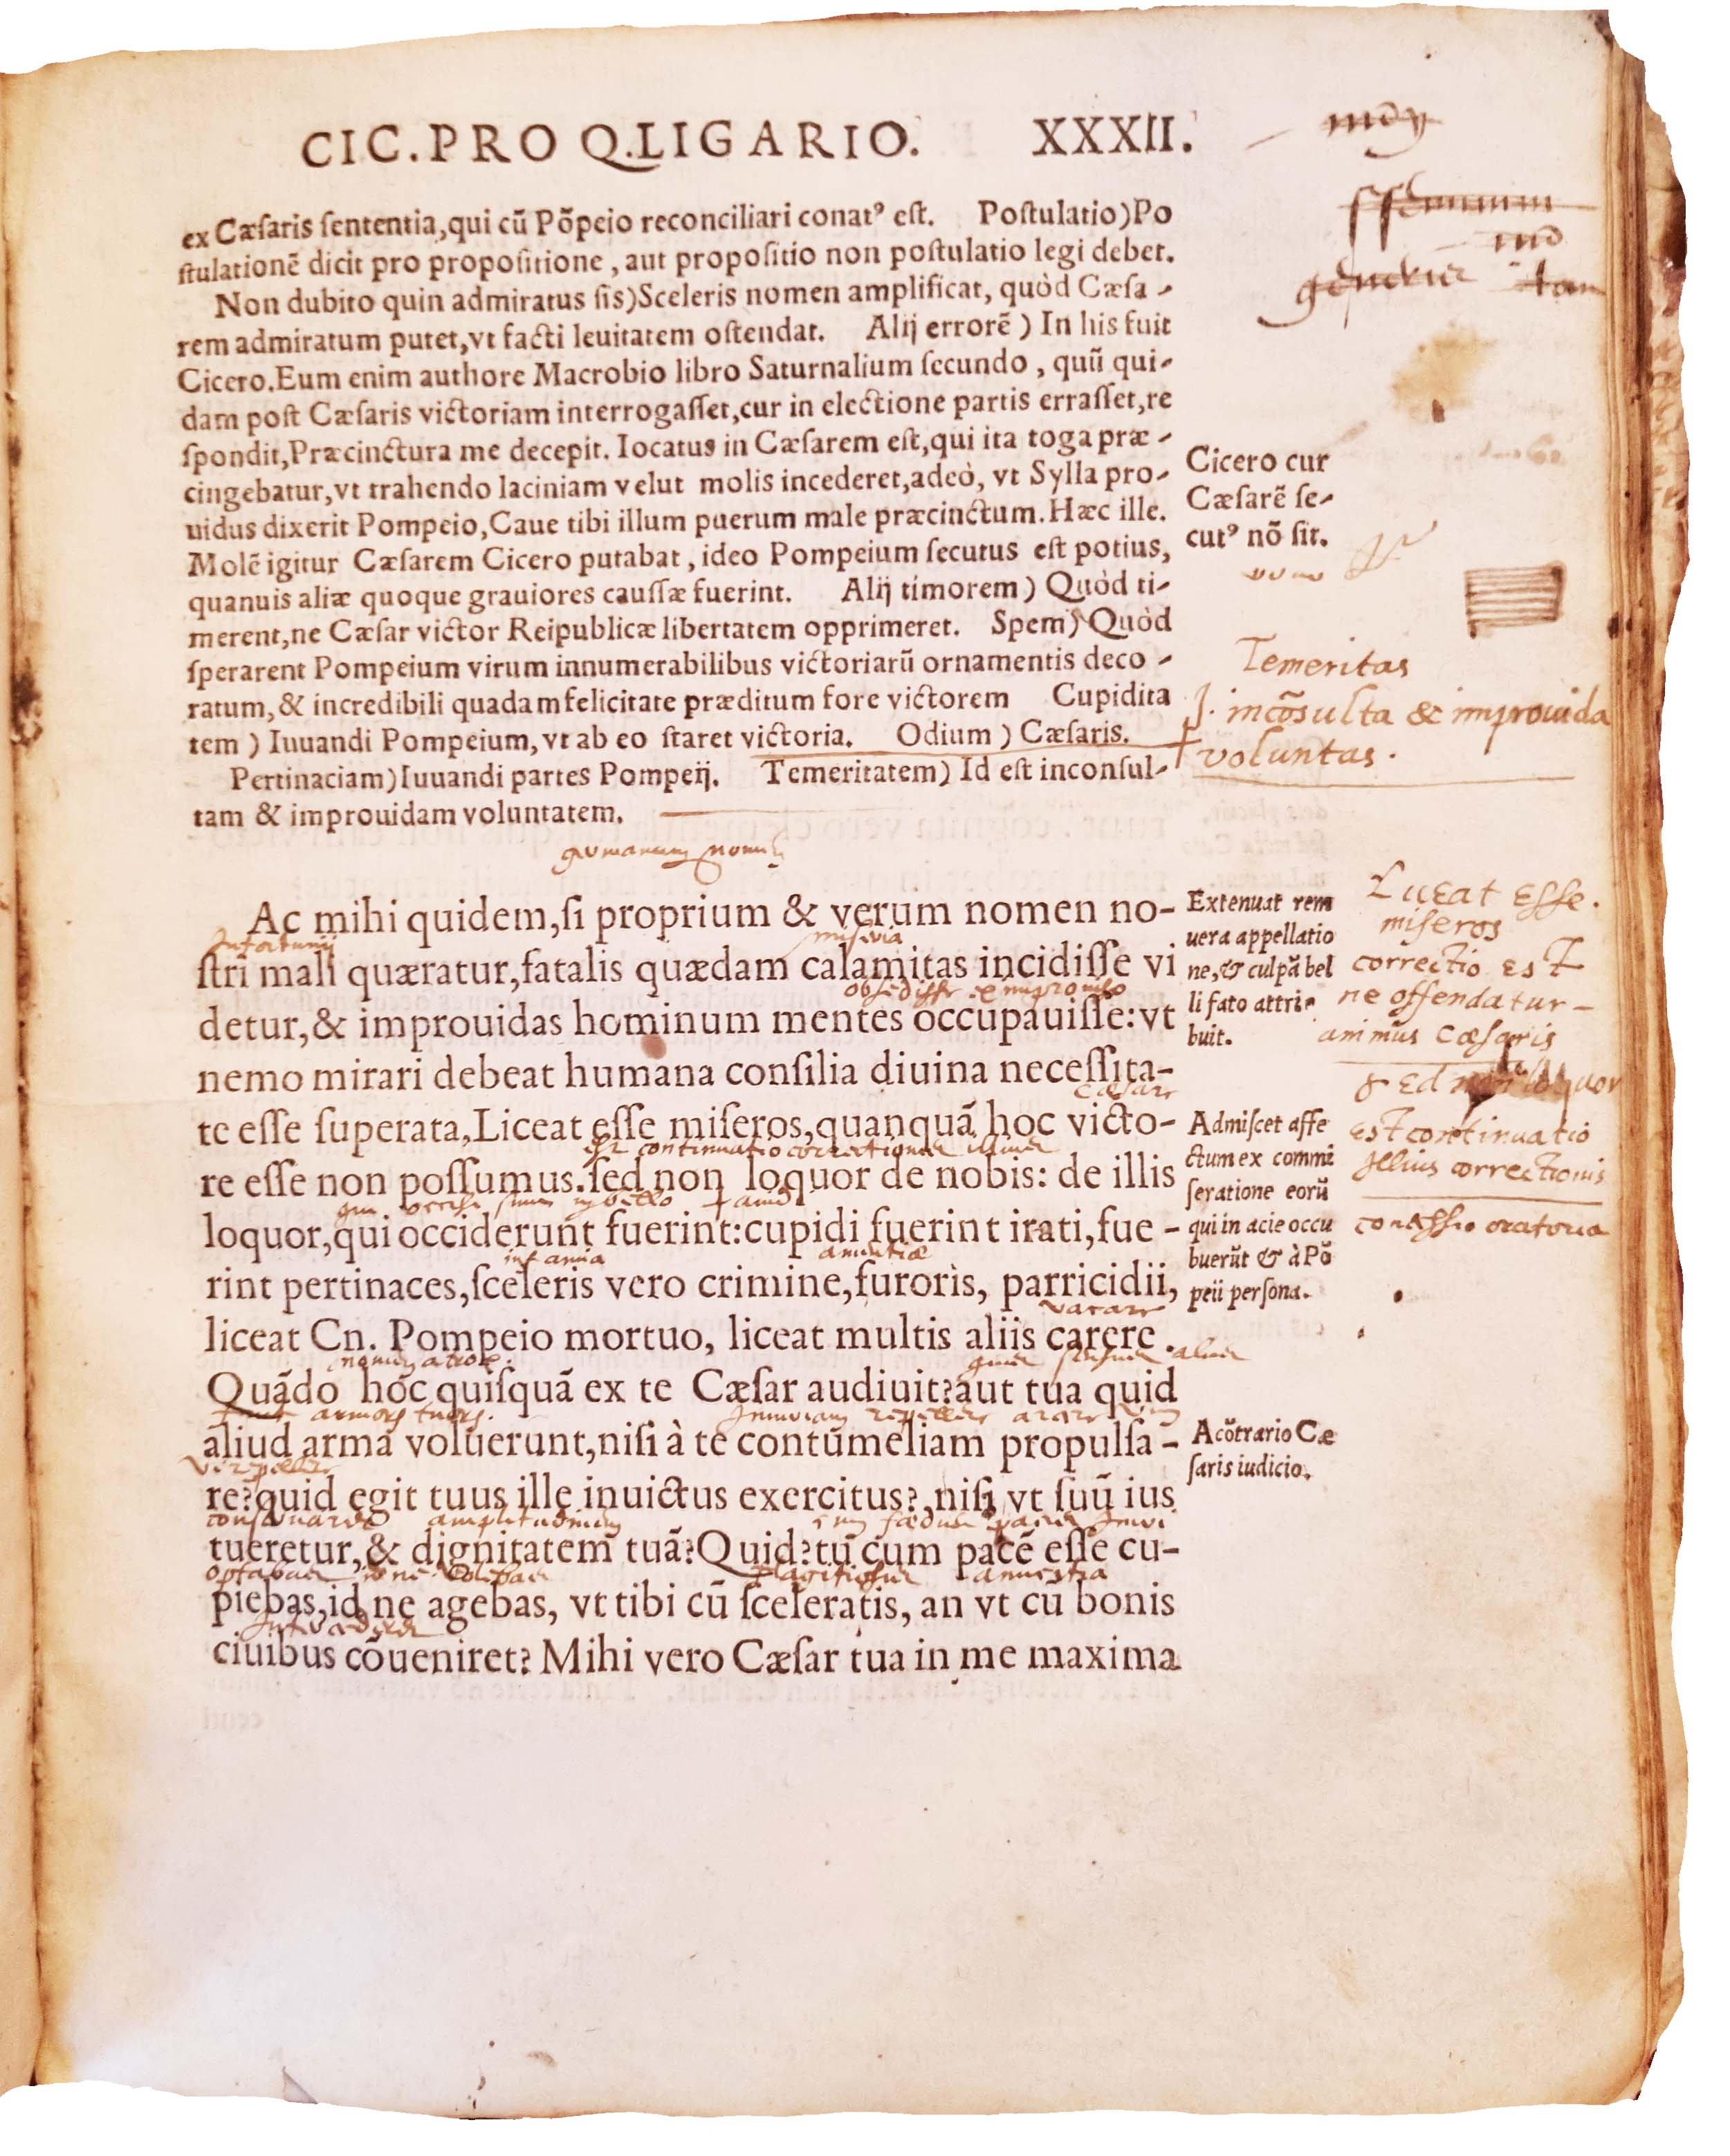 CIC.PRO Q.LIGARIO. XXXII.
ex Cæſaris ſententia,qui cũ Põpeio reconciliari conatꝰ eſt. Poſtulatio)Po
ſtulationẽ dicit pro propoſitione, aut propoſitio non poſtulatio legi debet.
Non dubito quin admiratus ſis)Sceleris nomen amplificat, quòd Cæſa-
rem admiratum putet,vt facti leuitatem oſtendat. Alij errorẽ ) In his fuit
Cicero.Eum enim authore Macrobio libro Saturnalium ſecundo, quũ qui-
dam poſt Cæſaris victoriam interrogaſſet,cur in electione partis erraſſet,re
ſpondit,Præcinctura me decepit. Iocatus in Cæſarem eſt,qui ita toga præ-
cingebatur,vt trahendo laciniam velut molis incederet,adeò, vt Sylla pro-
uidus dixerit Pompeio,Caue tibi illum puerum male præcinctum.Hæc ille.
Molẽ igitur Cæſarem Cicero putabat, ideo Pompeium ſecutus eſt potius,
quanuis aliæ quoque grauiores cauſſæ fuerint. Alij timorem) Quòd ti-
merent,ne Cæſar victor Reipublicæ libertatem opprimeret. Spem) Quòd
ſperarent Pompeium virum innumerabilibus victoriarũ ornamentis deco-
ratum,& incredibili quadam felicitate præditum fore victorem Cupidita
tem ) Iuuandi Pompeium,vt ab eo ſtaret victoria. Odium ) Cæſaris.
Pertinaciam)Iuuandi partes Pompeij. Temeritatem) Id eſt inconſul-
tam & improuidam voluntatem.
Cicero cur
Cæſarẽ ſe-
cutꝰ nõ ſit.
Temeritas
.i. incõsulta & improuida
voluntas.
Ac mihi quidem,ſi proprium & verum nomen no-
Infortunij miseria
ſtri mali quæratur,fatalis quædam calamitas incidiſſe vi
obsedisse ex improuiso
detur,& improuidas hominum mentes occupauiſſe:vt
nemo mirari debeat humana conſilia diuina neceſſita-
Cæsare
te eſſe ſuperata,Liceat eſſe miſeros,quanquã hoc victo-
est continuatio correctionis
re eſſe non poſſumus.ſed non loquor de nobis: de illis
qui occisi sunt in bello
loquor,qui occiderunt fuerint:cupidi fuerint irati,fue-
infamia amentiæ
rint pertinaces,ſceleris vero crimine,furoris, parricidii,
vacare
liceat Cn. Pompeio mortuo, liceat multis aliis carere.
Quãdo hoc quiſquã ex te Cæſar audiuit?aut tua quid
aliud arma voluerunt,niſi à te contumeliam propulſa-
re?quid egit tuus ille inuictus exercitus?,niſi vt ſuũ ius
amplitudinem
tueretur,& dignitatem tuã?Quid?tu cum pacẽ eſſe cu-
piebas,id ne agebas, vt tibi cũ ſceleratis, an vt cũ bonis
ciuibus cõueniret? Mihi vero Cæſar tua in me maxima
Extenuat rem
uera appellatio
ne,& culpã bel
li fato attri-
buit.
Admiſcet affe
ctum ex commi
ſeratione eorũ
qui in acie occu
buerũt & à Põ
peii perſona.
A cõtrario Cæ
ſaris iudicio.
Liceat esse.
miseros
correctio est
ne offendatur
animus Cæsaris
Sed non loquor
est continuatio
illius correctionis
concessio oratoria